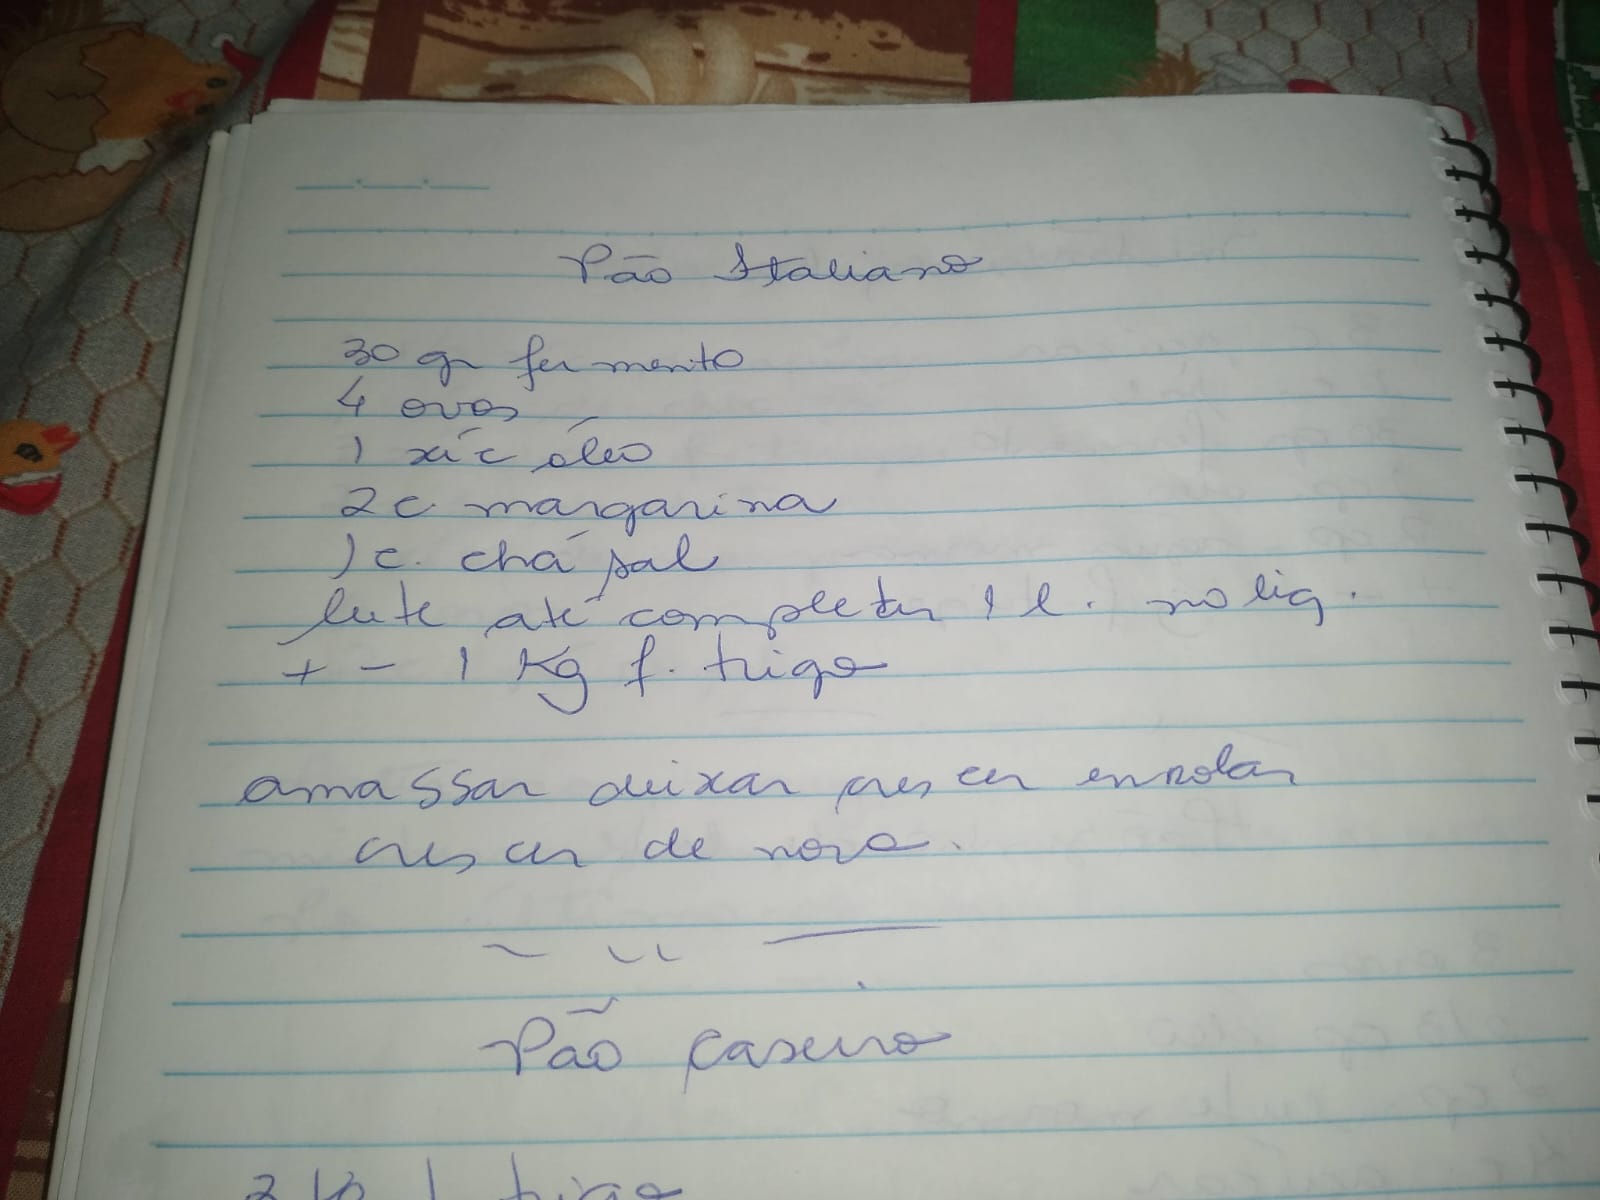 Pão Italiano
30 gr fermento
4 ovos
1 xíc óleo
2 c. margarina
1 c. chá sal
leite até completar 1 l. no liq.
+ - 1 Kg f. trigo
amassar deixar crescer enrolar
crescer de novo.
Pão Caseiro
trigo